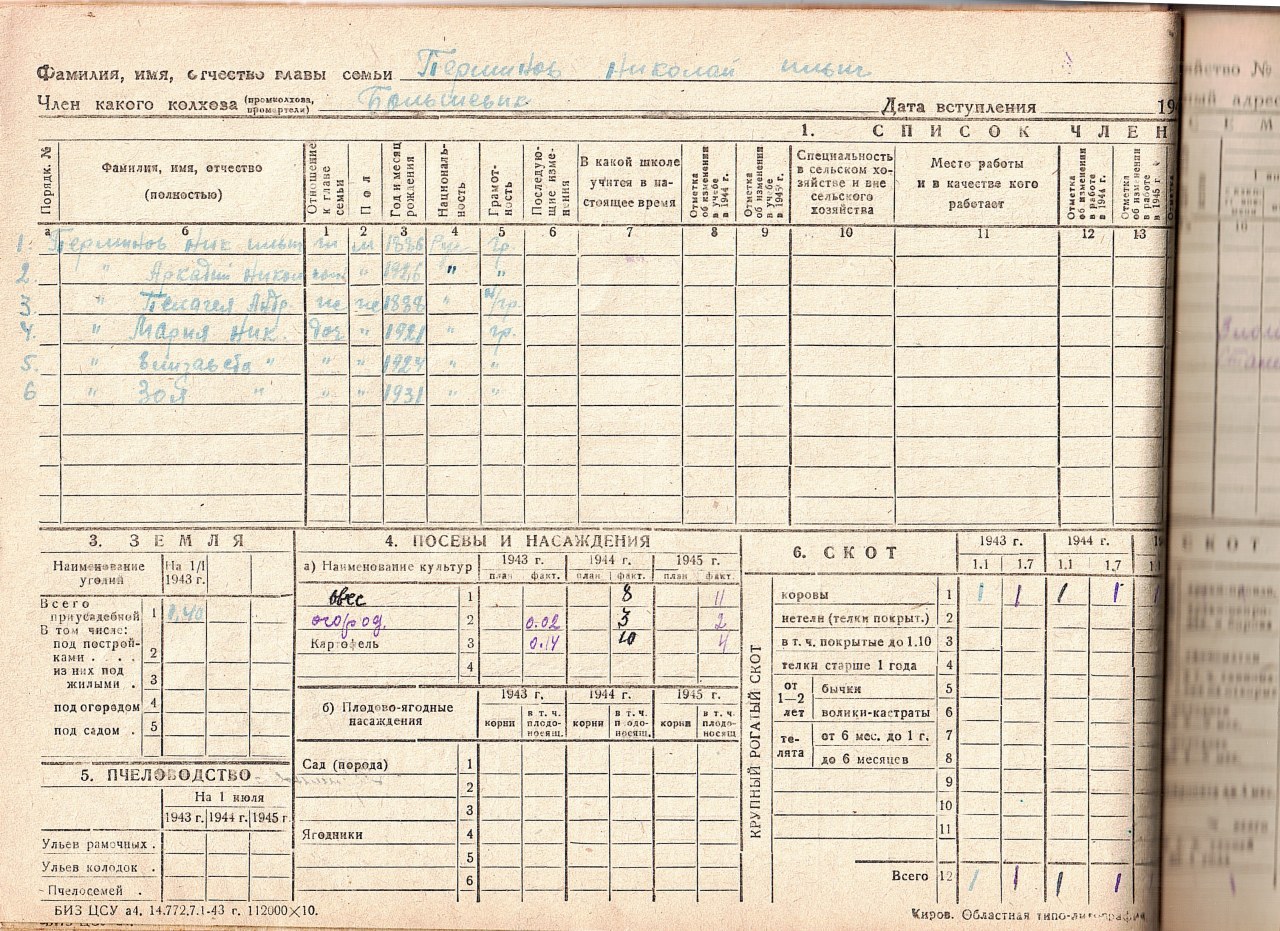 Фамилия, имя, отчество главы семьи Перминов Николай Ильич
Член какого колхоза (промколхоза, промартели) Большевик Дата вступления 194
1. СПИСОК ЧЛЕН
Порядк. № Фамилия, имя, отчество (полностью) Отношение к главе семьи Пол Год и месяц рождения Националь-ность Грамот-ность Последую-щие изме-нения В какой школе учится в на-стоящее время Отметка об изменении в учебе в 1944 г. Отметка об изменении в учебе в 1945 г. Специальность в сельском хо-зяйстве и вне сельского хозяйства Место работы и в качестве кого работает Отметка об изменении в работе в 1944 г. Отметка об изменении в работе в 1945 г.
а б 1 2 3 4 5 6 7 8 9 10 11 12 13
1. Перминов Ник Ильич м 1886 Рус гр.
2. " Аркадий Никол " 1926 " "
3 " Пелагея Андр. "
4. " Мария Ник. доч " 1921 " гр.
5. " Елизавета " " " " "
6 " Зоя " " " 1931 " "
3. ЗЕМЛЯ
Наименование угодий На 1/I 1943 г.
Всего приусадебной 1 0,40
В том числе:
под построй-ками . . . . 2
из них под жилыми . 3
под огородом 4
под садом . 5
5. ПЧЕЛОВОДСТВО
На 1 июля
1943 г. 1944 г. 1945 г
Ульев рамочных .
Ульев колодок .
Пчелосемей .
4. ПОСЕВЫ И НАСАЖДЕНИЯ
а) Наименование культур 1943 г. 1944 г. 1945 г.
план факт. план факт. план факт.
овес 1 8 11
огород 2 0.02 3 2
Картофель 3 0.14 10 4
4
б) Плодово-ягодные насаждения 1943 г. 1944 г. 1945 г.
корни в т. ч. плодо-носящ. корни в т. ч. плодо-носящ. корни в т. ч. плодо-носящ
Сад (порода) 1
2
3
Ягодники 4
5
6
6. СКОТ
1943 г. 1944 г.
1.1 1.7 1.1 1.7 1.1
КРУПНЫЙ РОГАТЫЙ СКОТ
коровы 1 1 1 1 1 1
нетели (телки покрыт.) 2
в т. ч. покрытые до 1.10 3
телки старше 1 года 4
от 1—2 лет бычки 5
волики-кастраты 6
те-лята от 6 мес. до 1 г. 7
до 6 месяцев 8
9
10
11
Всего 12 1 1 1 1
БИЗ ЦСУ а4. 14.772,7.1-43 г. 112000×10.
Киров. Областная типо-литография